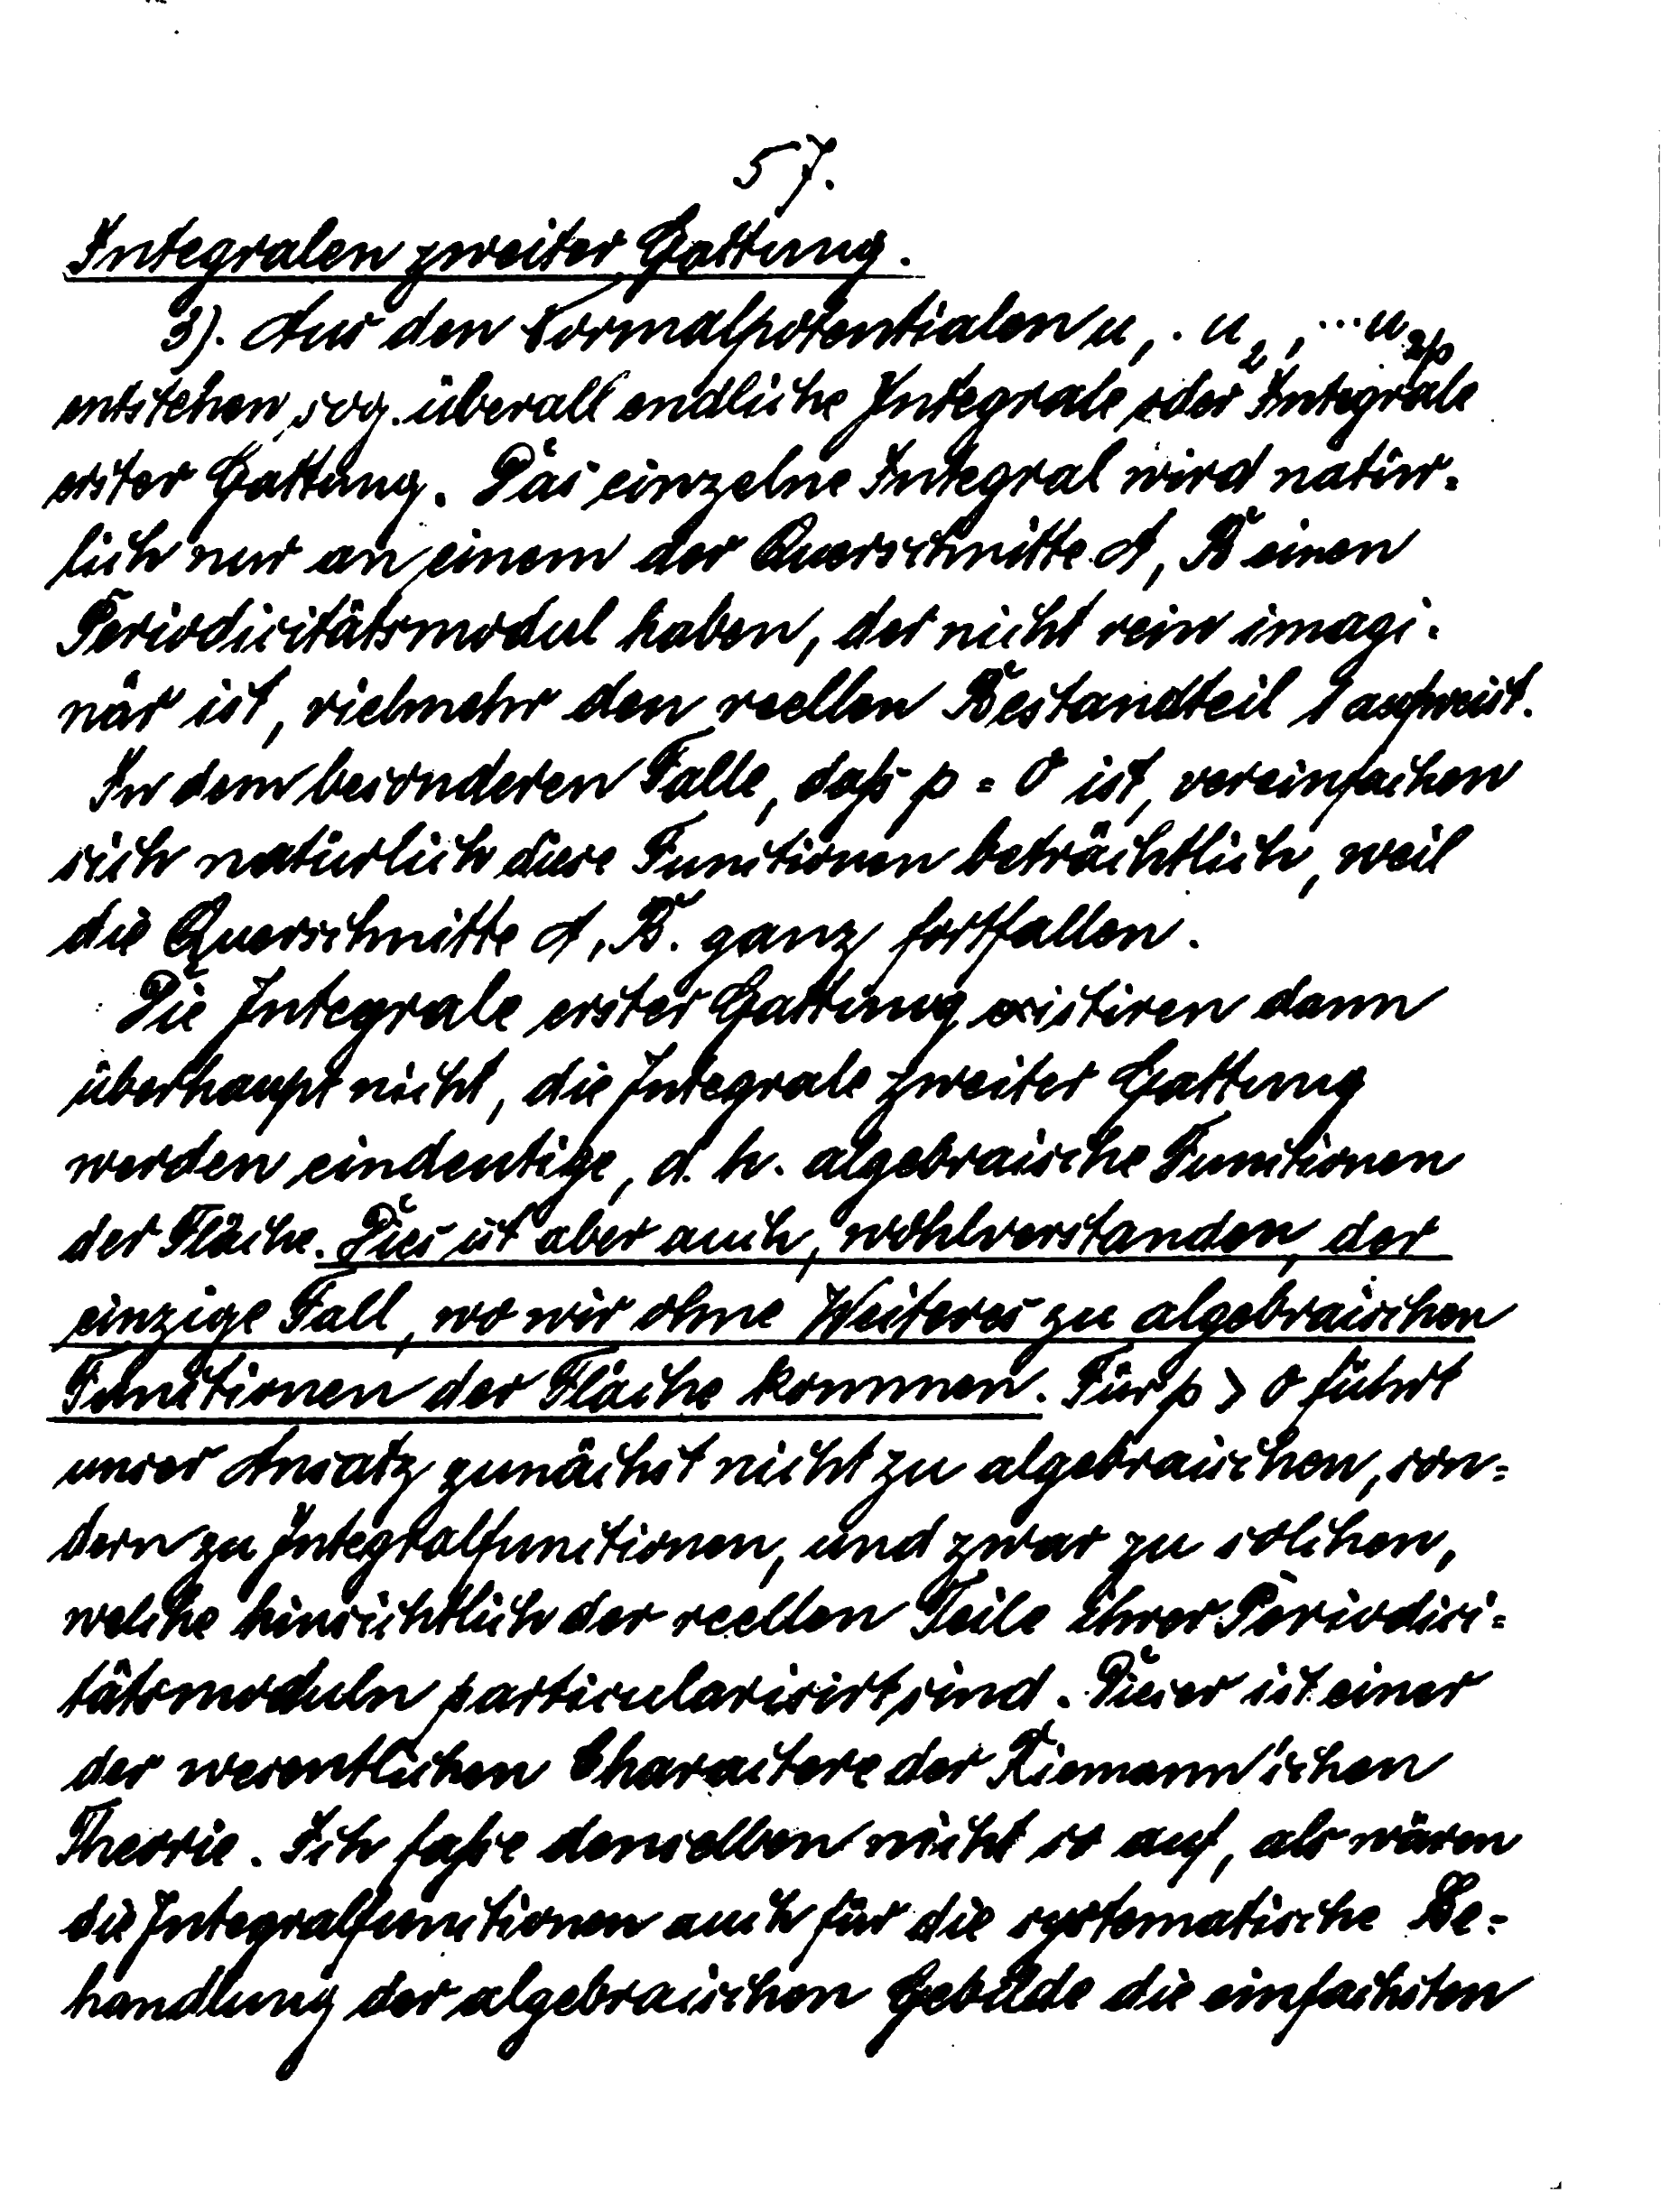 57.
Integralen zweiter Gattung.
3). Aus den Normalpotentialen u₁, u₂, ... u₂ₚ
entstehen sog. überall endliche Integrale oder Integrale
erster Gattung. Das einzelne Integral wird natür-
lich nur an einem der Querschnitte A, B einen
Periodicitätsmodul haben, der nicht rein imagi-
när ist, vielmehr den reellen Bestandteil 1 aufweist.
In dem besonderen Falle, daß p = 0 ist, vereinfachen
sich natürlich diese Functionen beträchtlich, weil
die Querschnitte A, B. ganz fortfallen.
Die Integrale erster Gattung existiren dann
überhaupt nicht, die Integrale zweiter Gattung
werden eindeutige, d. h. algebraische Functionen
der Fläche. Dies ist aber auch, wohlverstanden, der
einzige Fall, wo wir ohne Weiteres zu algebraischen
Functionen der Fläche kommen. Für p > 0 führt
unser Ansatz zunächst nicht zu algebraischen, son-
dern zu Integralfunctionen, und zwar zu solchen,
welche hinsichtlich der reellen Teile ihrer Periodici-
tätsmoduln particularisirt sind. Dieser ist einer
der wesentlichen Charactere der Riemann'schen
Theorie. Ich faße denselben nicht so auf, als wären
die Integralfunctionen auch für die systematische Be-
handlung der algebraischen Gebilde die einfachsten